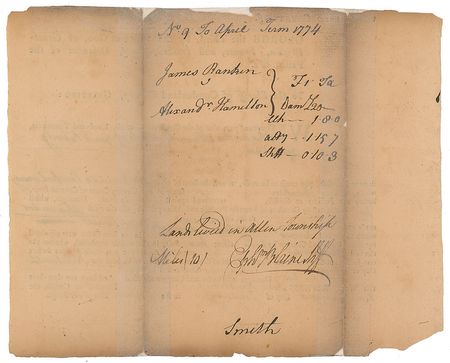 No 9 To April Term 1774
James Rankin
v
Alexandr Hamelton
} Fi Fa
Dam
Clk — 1.8.0
atty — 1.15.7
Shff — 0.10.3
Lands levied in Allen Township
Miles (10) Ephm Blaine Shff
Smith